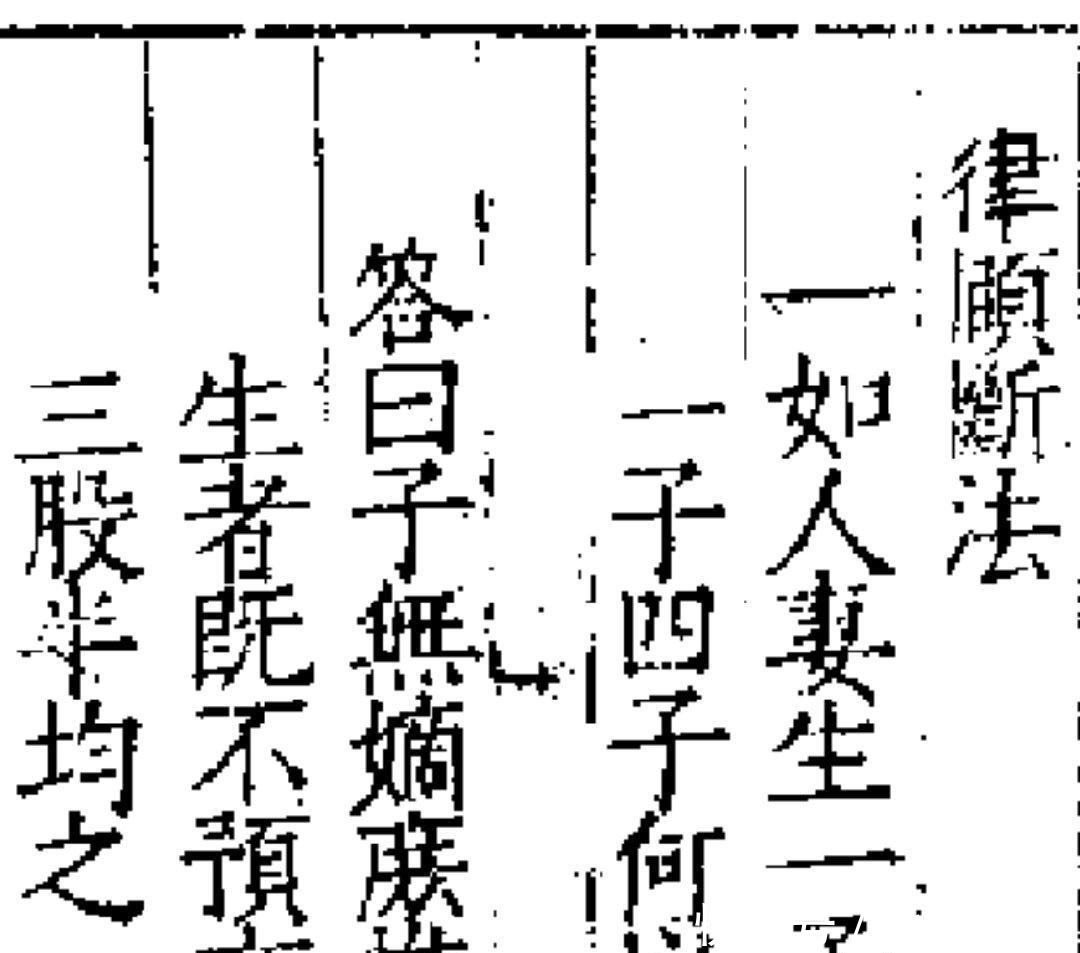 律頋斷法
一如人妻生一子
一子四子何
答曰子無嫡庶
生者既不預
三股半均之